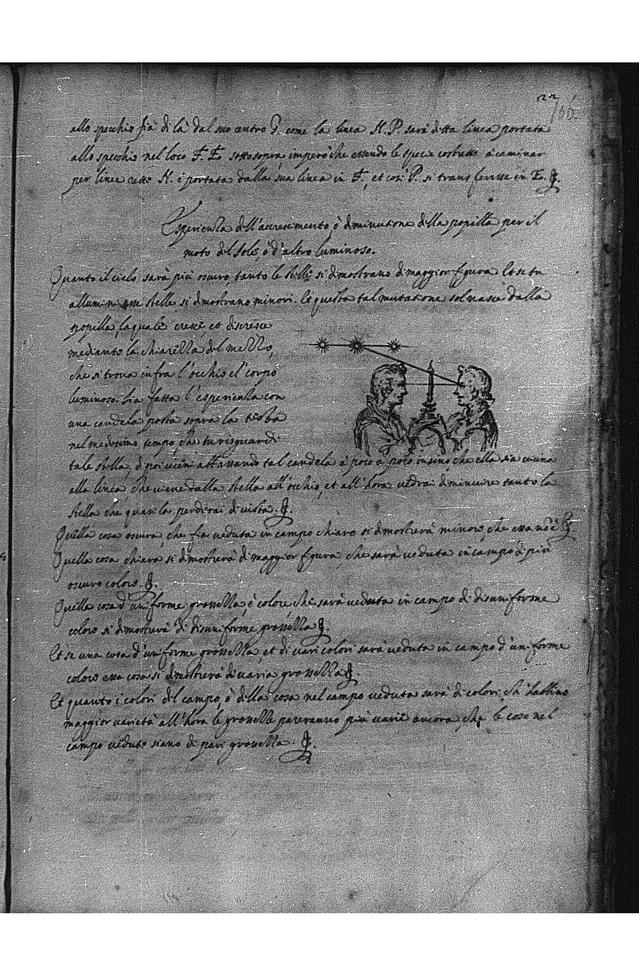 22
766
allo specchio fia di là dal suo centro G. come la linea H.P. sarà detta linea portata
allo specchio nel loco F.E. sottosopra imperòche essendo le specie costrette à caminar
per linee rette H. è portata dalla sua linea in F, et così P. si transferisce in E.
Esperienza dell'accrescimento, ò diminutione della popilla per il
moto del sole, ò d'altro luminoso.
Quanto il cielo sarà più oscuro, tanto le stelle si dimostrano di maggior figura, et se tu
allumini stelle si dimostrano minori. Et questa tal mutatione sol nasce dalla
popilla, laquale cresce et discresce
mediante la chiarezza del mezzo,
che si trova infra l'occhio e'l corpo
luminoso. sia fatta l'esperienza con
una candela posta sopra la testa
nel medesimo tempo che tu risguardi
tale stella, di poi vieni abbassando tal candela à poco à poco insino che ella sia vicina
alla linea che viene dalla stella all'occhio, et all'hora vedrai diminuire tanto la
stella che quasi la perderai di vista.
Quella cosa oscura, che fia veduta in campo chiaro si dimosterà minore, che essa non è
Quella cosa chiara si dimosterà di maggior figura che sarà veduta in campo di più
oscuro colore.
Quella cosa d'un forme grossezza, e colore che sarà veduta in campo di disuniforme
colore si dimosterà di disuniforme grossezza.
Et se una cosa d'un forme grossezza, et di vari colori sarà veduta in campo d'un forme
colore essa cosa si dimosterà di varia grossezza.
Et quanto i colori del campo, ò della cosa nel campo veduta sarà di colori ch'habbino
maggior varietà all'hora le grossezze pareranno più varie ancora, che le cose nel
campo vedute siano di pari grossezza.